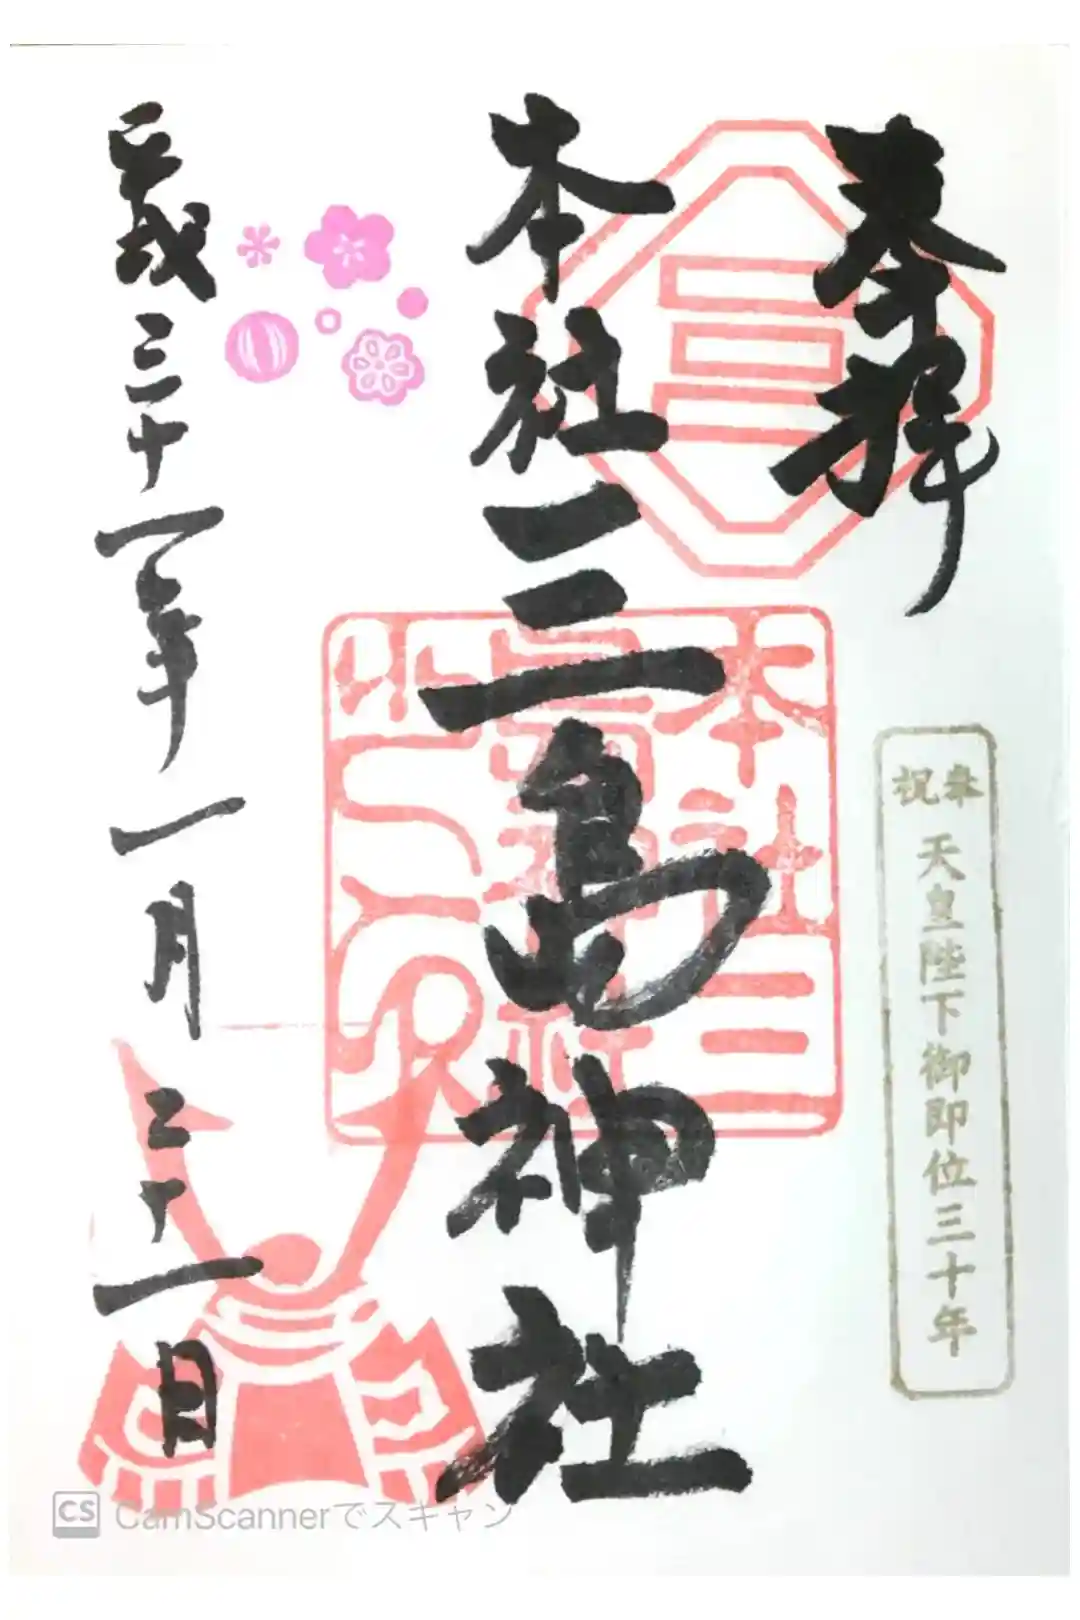 奉拝
奉祝
天皇陛下御即位三十年
本社三島神社
本社三
島神社
之印
平成三十一年一月二十一日
CS CamScannerでスキャン